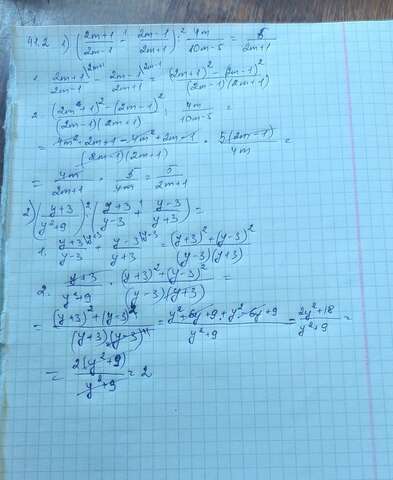 41.2 1) ( 2m+1 / 2m-1 - 2m-1 / 2m+1 ) : 4m / 10m-5 = 5 / 2m+1
1. 2m+1 \2m+1 / 2m-1 - 2m-1 \2m-1 / 2m+1 = (2m+1)² - (2m-1)² / (2m-1)(2m+1)
2. (2m+1)² - (2m-1)² / (2m-1)(2m+1) : 4m / 10m-5 =
= 4m² + 2m+1 - 4m² + 2m - 1 / (2m-1)(2m+1) · 5(2m-1) / 4m =
= 4m / 2m+1 · 5 / 4m = 5 / 2m+1
2) ( y+3 / y²+9 ) · ( y+3 / y-3 + y-3 / y+3 ) =
1. y+3 \y+3 / y-3 + y-3 \y-3 / y+3 = (y+3)² + (y-3)² / (y-3)(y+3)
2. y+3 / y²+9 · (y+3)² + (y-3)² / (y-3)(y+3) =
= (y+3)² + (y-3)² / (y+3)(y-3) = y² + 6y + 9 + y² - 6y + 9 / y²+9 = 2y²+18 / y²+9 =
= 2(y²+9) / y²+9 = 2